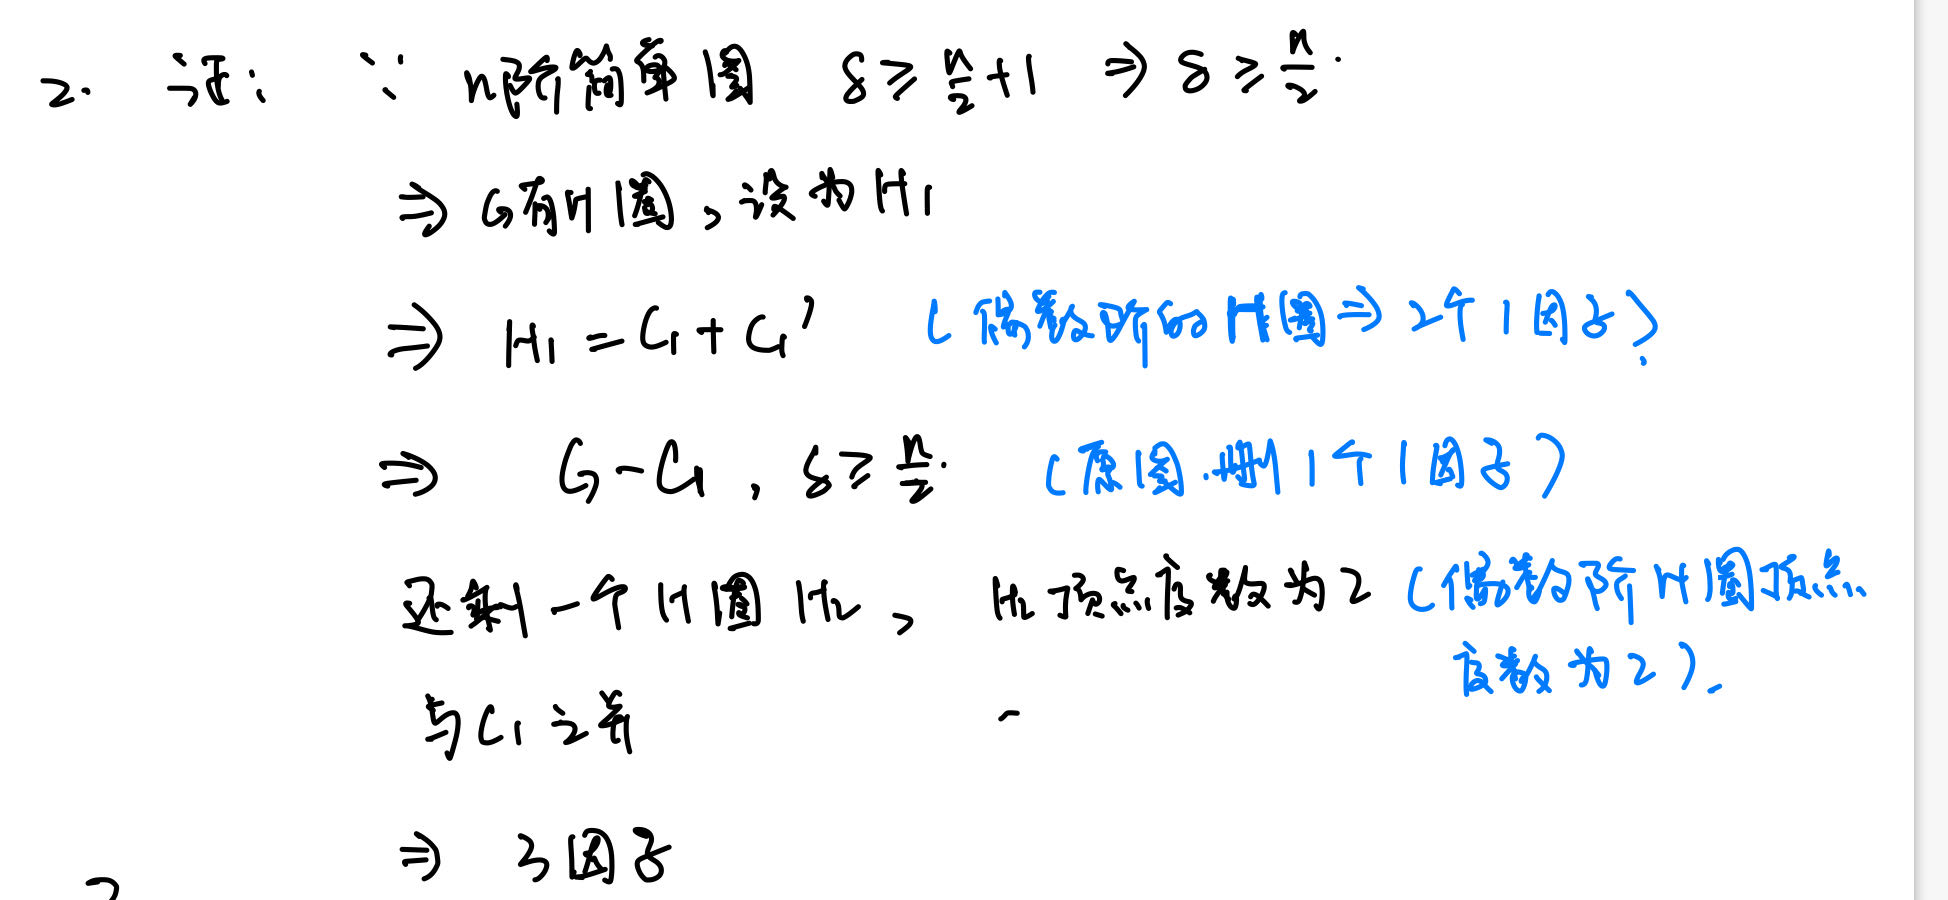 2. 证: ∵ n阶简单图 δ ≥ n/2 + 1 ⇒ δ ≥ n/2.
⇒ G有H圈, 设为H₁
⇒ H₁ = C₁ + C₁' (偶数阶的H圈 ⇒ 2个1因子).
⇒ G - C₁, δ ≥ n/2. (原图.删1个1因子)
还剩一个H圈H₂, H₂顶点度数为2 (偶数阶H圈顶点
度数为2).
与C₁之并
⇒ 3因子